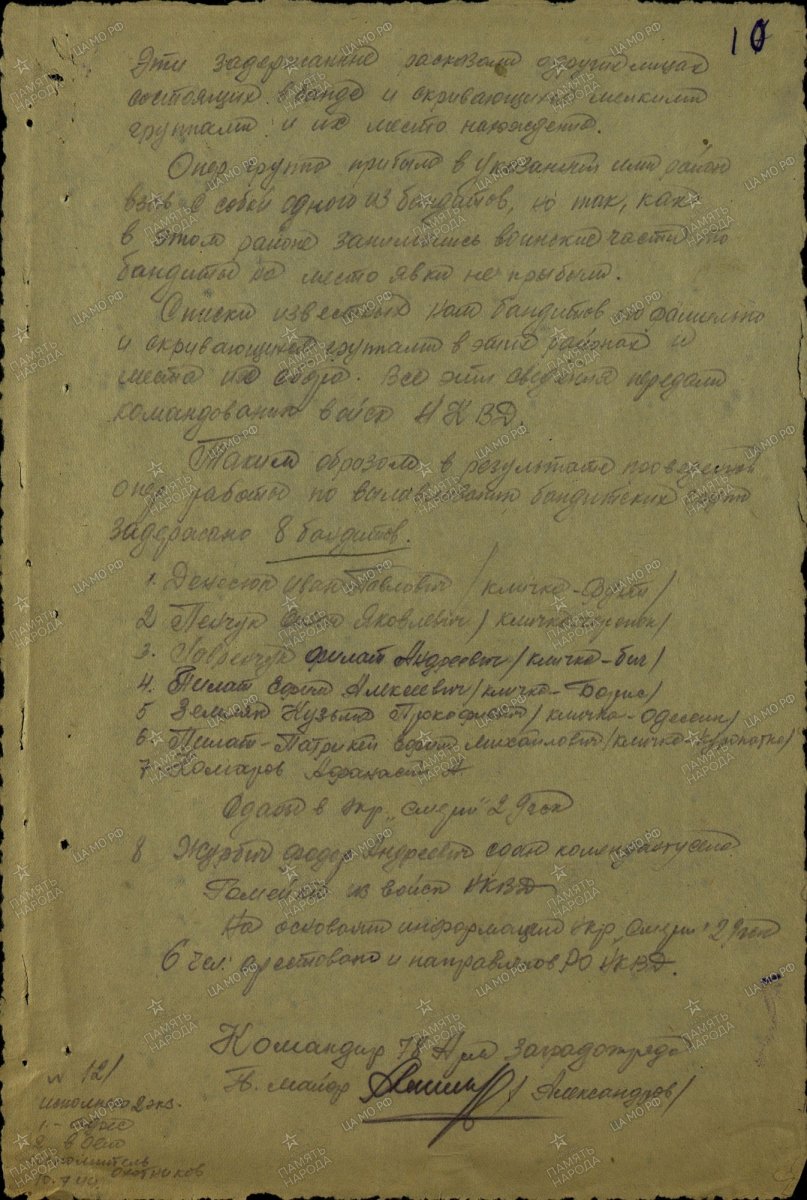 10
Эти задержанные расказали о других лицах
состоящих в банде и скривающихся мелкими
группами и их место нахождения.
Опер группа прибыла в указанный ими район
взяв с собой одного из бандитов, но так, как
в этом районе занимались воинские части то
бандиты на место явки не прибыли.
Списки известных нам бандитов по фамильно
и скривающихся группами в этих районах и
места их сбора. Все эти сведения передали
командованию войск НКВД.
Таким образом в результате проведенной
опер работы по вылавливанию бандитских групп
задержано 8 бандитов.
1. Денесюк Иван Павлович /кличка-
2 Яковлевич /кличка
3. Гаврилчук Филат Андреевич /кличка-бич/
4. Пилат Ефим Алексеевич /кличка-Борис/
5 Земляк Кузьма Прокофиевич /кличка-Одесин/
6. Пилат-Патрикей Ефим Михайлович /кличка-Куропатка/
7. Комаров Афанасий А
Сданы в окр „Смерш" 2 Гвск
8 Журбич Федор Андреевич сдан коменданту села
из войск НКВД
На основании информации окр „Смерш" 2 Гвск
6 чел. арестовано и направлено в РО НКВД.
Командир 78 Арм Заградотряда
Гв. майор /Александров/
№ 12/
исполнено 2 экз.
1 -
2. в дело
исполнитель
Охотников